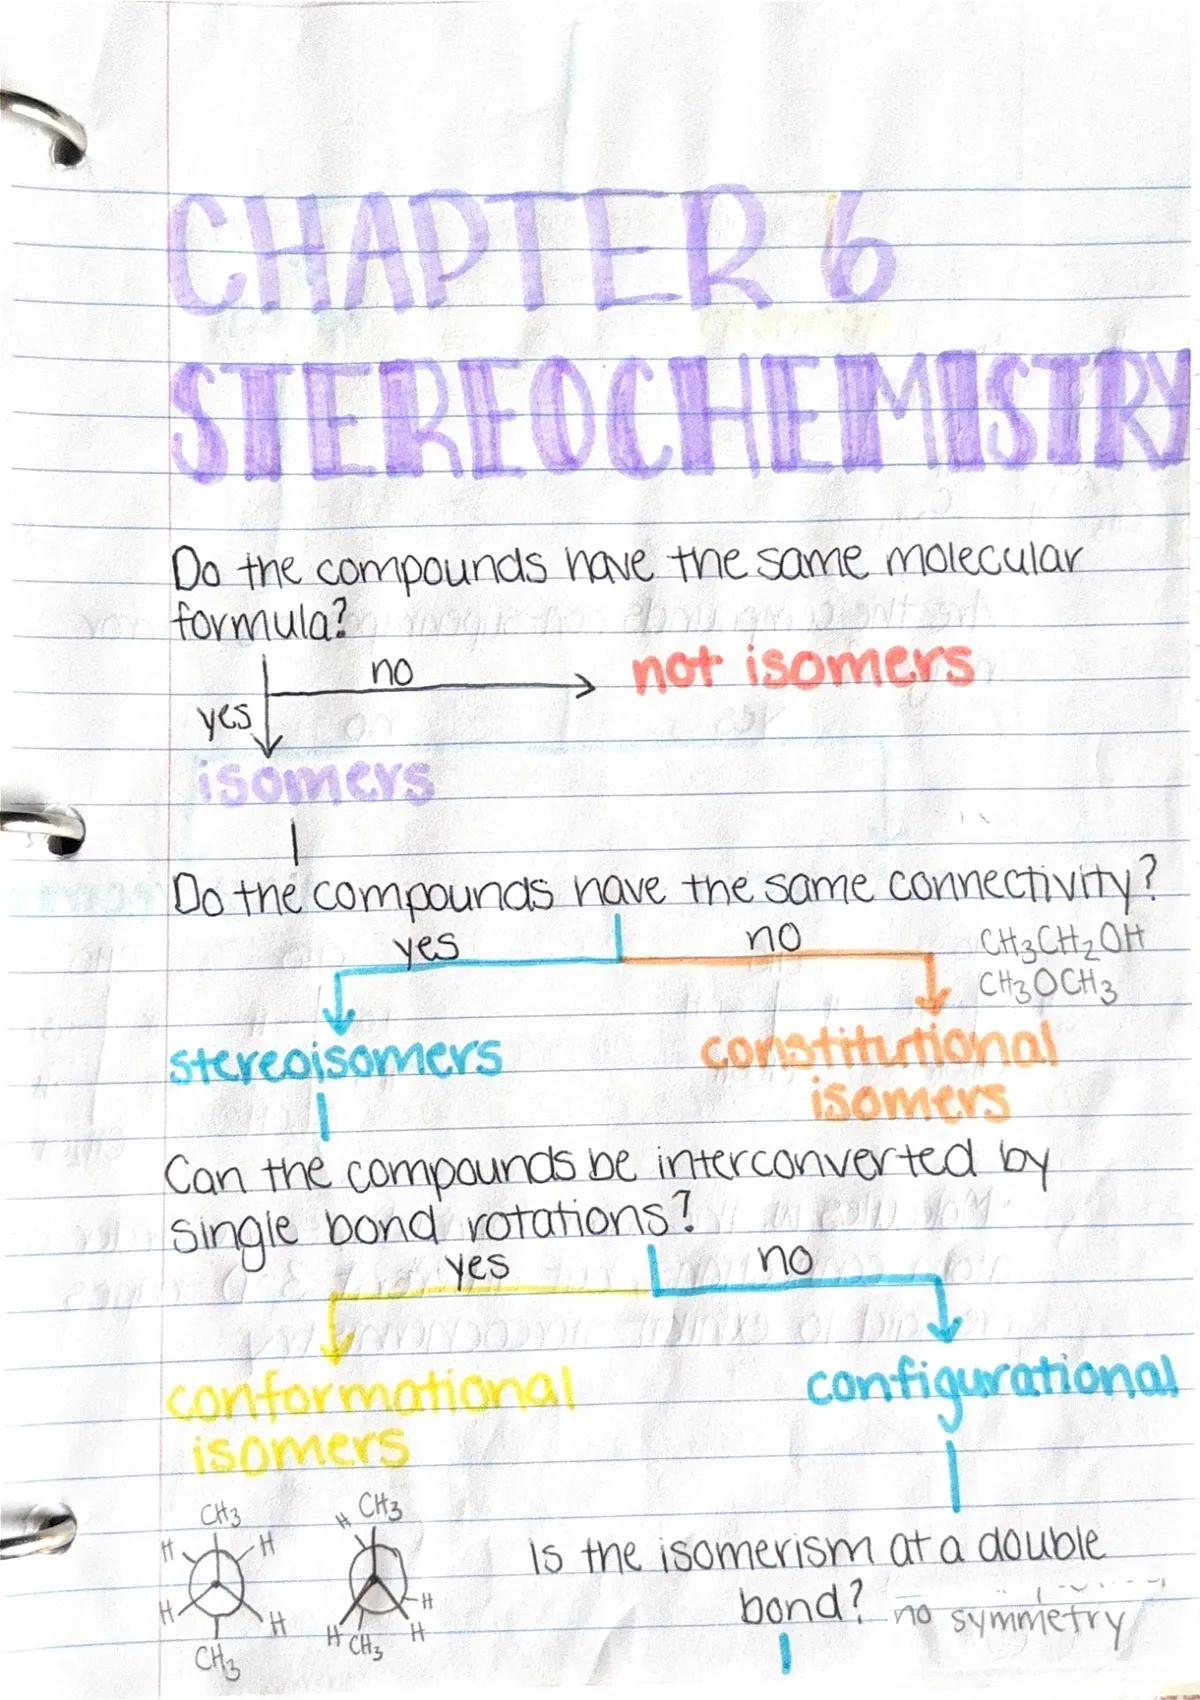 CHAPTER 6
STEREOCHEMISTRY
Do the compounds have the same molecular
formula?
no
not isomers
yes
isomers
Do the compounds have the same connectivity?
yes
no
CH₃CH₂OH
CH₃OCH₃
stereoisomers
constitutional
isomers
Can the compounds be interconverted by
single bond rotations?
yes
no
conformational
isomers
configurational
CH₃
H
H
H
H
CH₃
H
CH₃
H
H
CH₃
H
Is the isomerism at a double
bond?
no symmetry